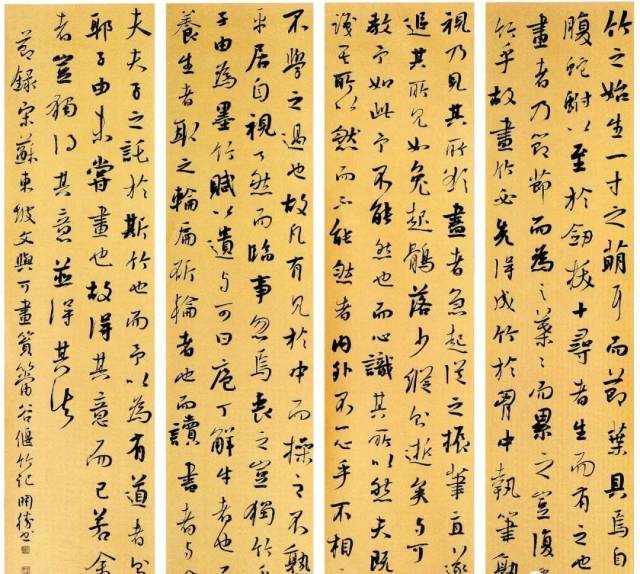 竹之始生一寸之萌耳而節葉具焉自
腹蛇蚹以至於劍拔十尋者生而有之也
畫者乃節節而為之葉葉而累之豈復
竹乎故畫竹必先得成竹於胸中執筆熟
視乃見其所欲畫者急起從之振筆直遂
追其所見如兔起鶻落少縱則逝矣與可
教予如此予不能然也而心識其所以然夫既
識其所以然而不能然者內外不一心手不相
不學之過也故凡有見於中而操之不熟
平居自視了然而臨事忽焉喪之豈獨竹乎
子由為墨竹賦以遺與可曰庖丁解牛者也
養生者取之輪扁斫輪者也而讀書者與
夫夫子之託於斯竹也而予以為有道者則
耶子由未嘗畫也故得其意而已若余
者豈獨得其意並得其法
節錄宋蘇東坡文與可畫篔簹谷偃竹記